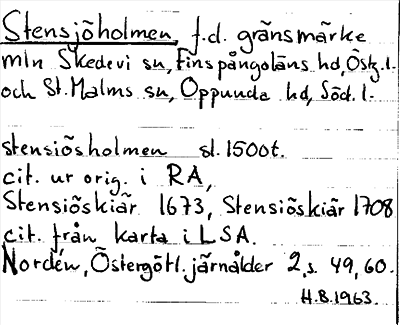 Stensjöholmen, f.d. gränsmärke
mln Skedevi sn, Finspångaläns hd, Östg.l.
och St. Malms sn, Oppunda hd, Söd. l.
stensiösholmen sl. 1500t.
cit. ur orig. i RA,
Stensiöskiär 1673, Stensiöskiär 1708
cit. från karta i LSA.
Nordén, Östergötl. järnålder 2, s. 49, 60.
H.B. 1963.